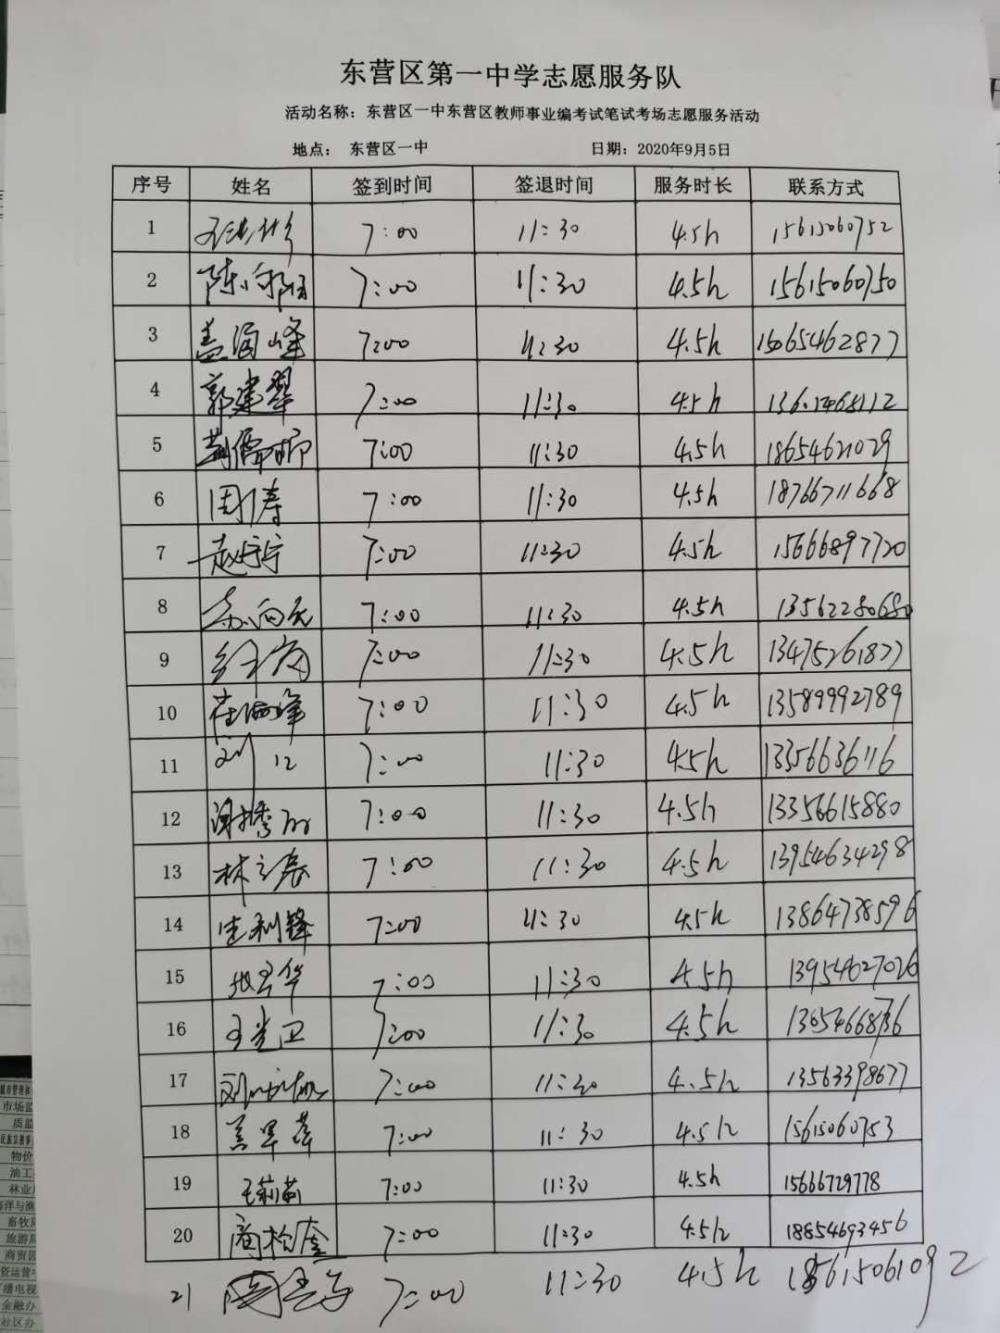 东营区第一中学志愿服务队
活动名称：东营区一中东营区教师事业编考试笔试考场志愿服务活动
地点： 东营区一中 日期：2020年9月5日
序号 姓名 签到时间 签退时间 服务时长 联系方式
1 7:00 11:30 4.5h 15615060752
2 陈向阳 7:00 11:30 4.5h 15615060750
3 盖海峰 7:00 11:30 4.5h 15065462877
4 郭建翠 7:00 11:30 4.5h
5 7:00 11:30 4.5h 18654621029
6 周涛 7:00 11:30 4.5h 18766711668
7 赵宁宁 7:00 11:30 4.5h 15666897720
8 7:00 11:30 4.5h 13562280680
9 7:00 11:30 4.5h 13475261877
10 7:00 11:30 4.5h 13589992789
11 刘 7:00 11:30 4.5h 13356636116
12 谢秀 7:00 11:30 4.5h 13356615880
13 林 7:00 11:30 4.5h 13954634298
14 生利锋 7:00 11:30 4.5h 13864738596
15 7:00 11:30 4.5h 13954627026
16 王光卫 7:00 11:30 4.5h
17 刘 7:00 11:30 4.5h 13563398677
18 7:00 11:30 4.5h 15615060753
19 王莉莉 7:00 11:30 4.5h 15666729778
20 7:00 11:30 4.5h 18854693456
21 7:00 11:30 4.5h
市场监
质监
物价
油工
林业
海洋与渔
畜牧局
旅游局
商贸园
资运营
播电视
金融办
社区办